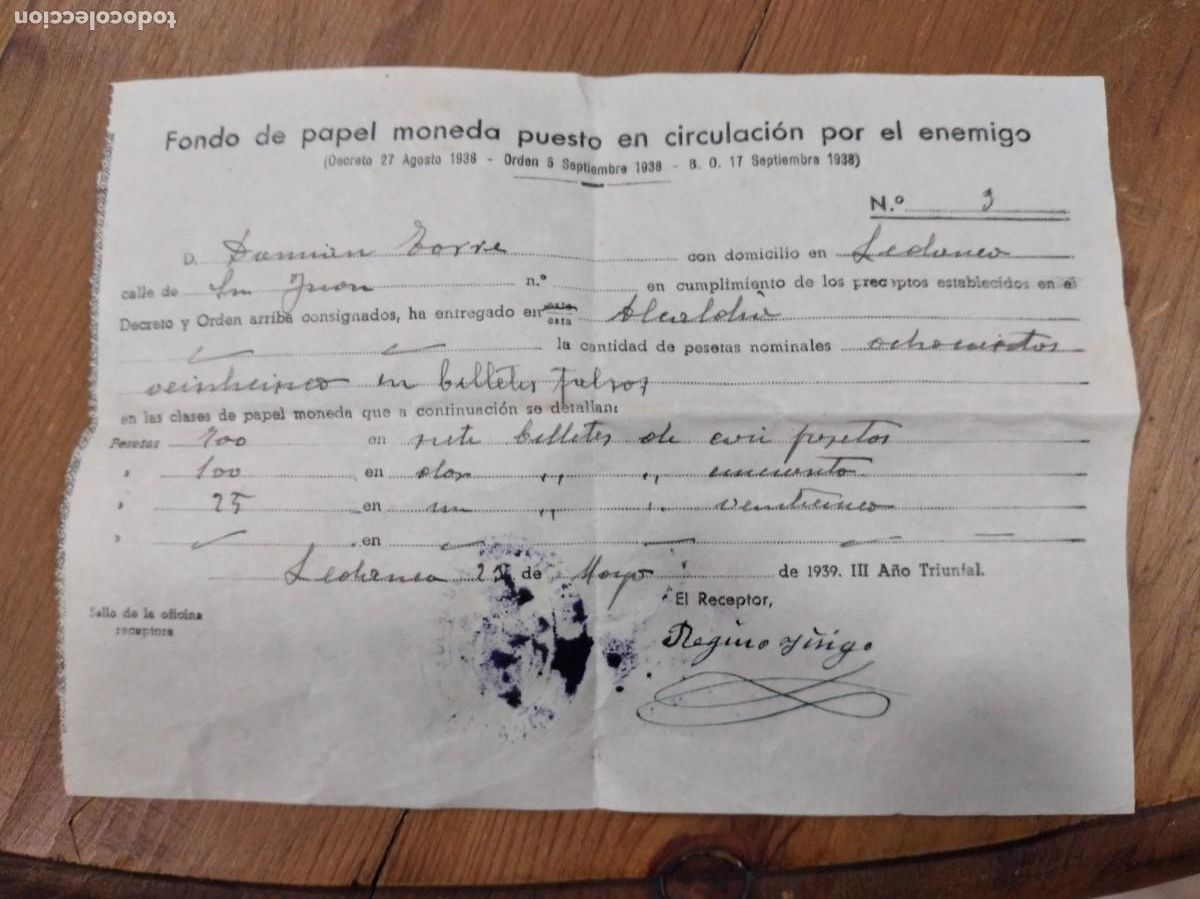 todocoleccion
Fondo de papel moneda puesto en circulación por el enemigo
(Decreto 27 Agosto 1938 - Orden 5 Septiembre 1938 - B. O. 17 Septiembre 1938)
N.º 3
D. Damian Torre con domicilio en Ledanca
calle de San Juan n.º en cumplimiento de los preceptos establecidos en el
Decreto y Orden arriba consignados, ha entregado en este esta Alcaldia
la cantidad de pesetas nominales ochocientos
veinticinco en billetes falsos
en las clases de papel moneda que a continuación se detallan:
Pesetas 700 en siete billetes de cien pesetas
» 100 en dos " " cincuenta
» 25 en un " " veinticinco
» en
Ledanca 22 de Mayo de 1939. III Año Triunfal.
Sello de la oficina
receptora
El Receptor,
Regino Iñigo